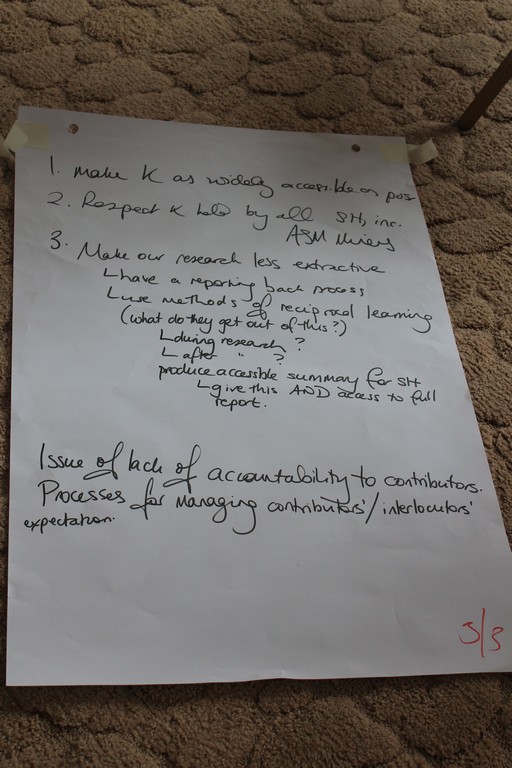 1. Make K as widely accessible as pos
2. Respect K held by all SH, inc.
ASM Miners
3. Make our research less extractive
↳have a reporting back process
↳use methods of reciprocal learning
(what do they get out of this?)
↳during research?
↳after " ?
produce accessible summary for SH
↳give this AND access to full
report.
Issue of lack of accountability to contributors.
Processes for managing contributors'/interlocutors'
expectation.
3/3